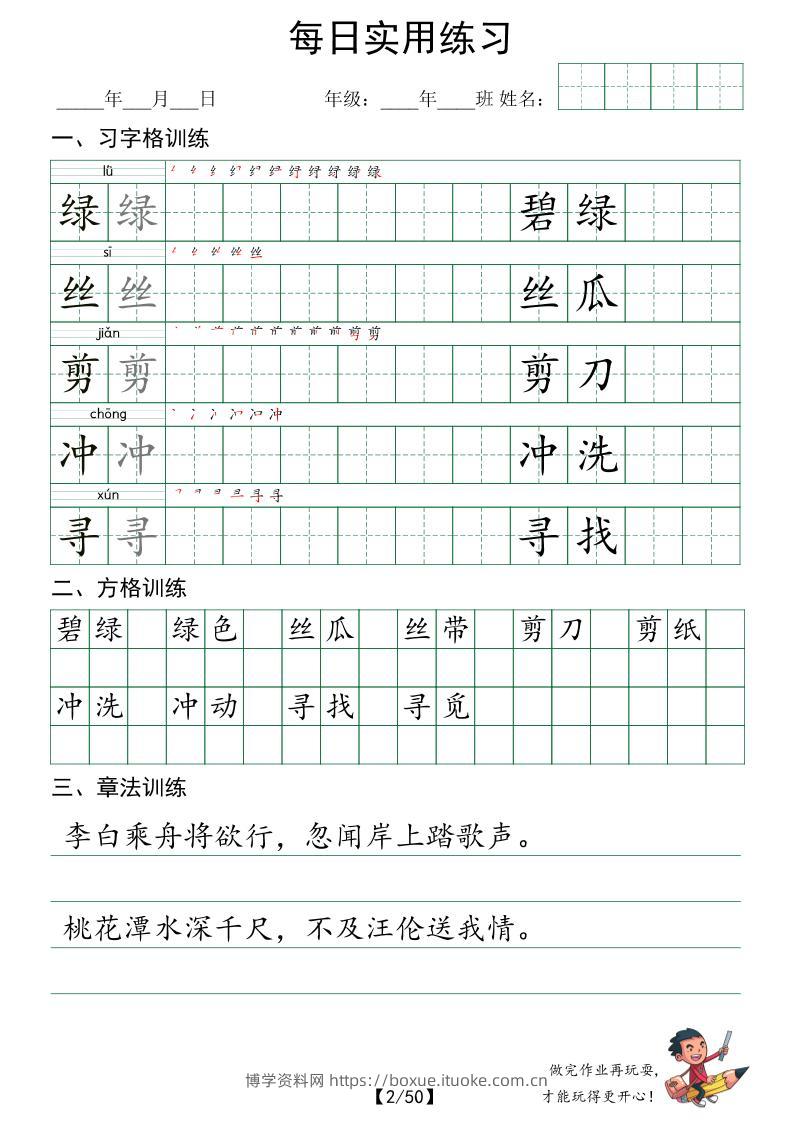 每日实用练习
_____年___月___日 年级：____年____班 姓名：
一、习字格训练
lǜ
绿 绿 碧 绿
sī
丝 丝 丝 瓜
jiǎn
剪 剪 剪 刀
chōng
冲 冲 冲 洗
xún
寻 寻 寻 找
二、方格训练
碧 绿 绿 色 丝 瓜 丝 带 剪 刀 剪 纸
冲 洗 冲 动 寻 找 寻 觅
三、章法训练
李白乘舟将欲行，忽闻岸上踏歌声。
桃花潭水深千尺，不及汪伦送我情。
做完作业再玩耍，
才能玩得更开心！
博学资料网 https://boxue.ituoke.com.cn
【2/50】